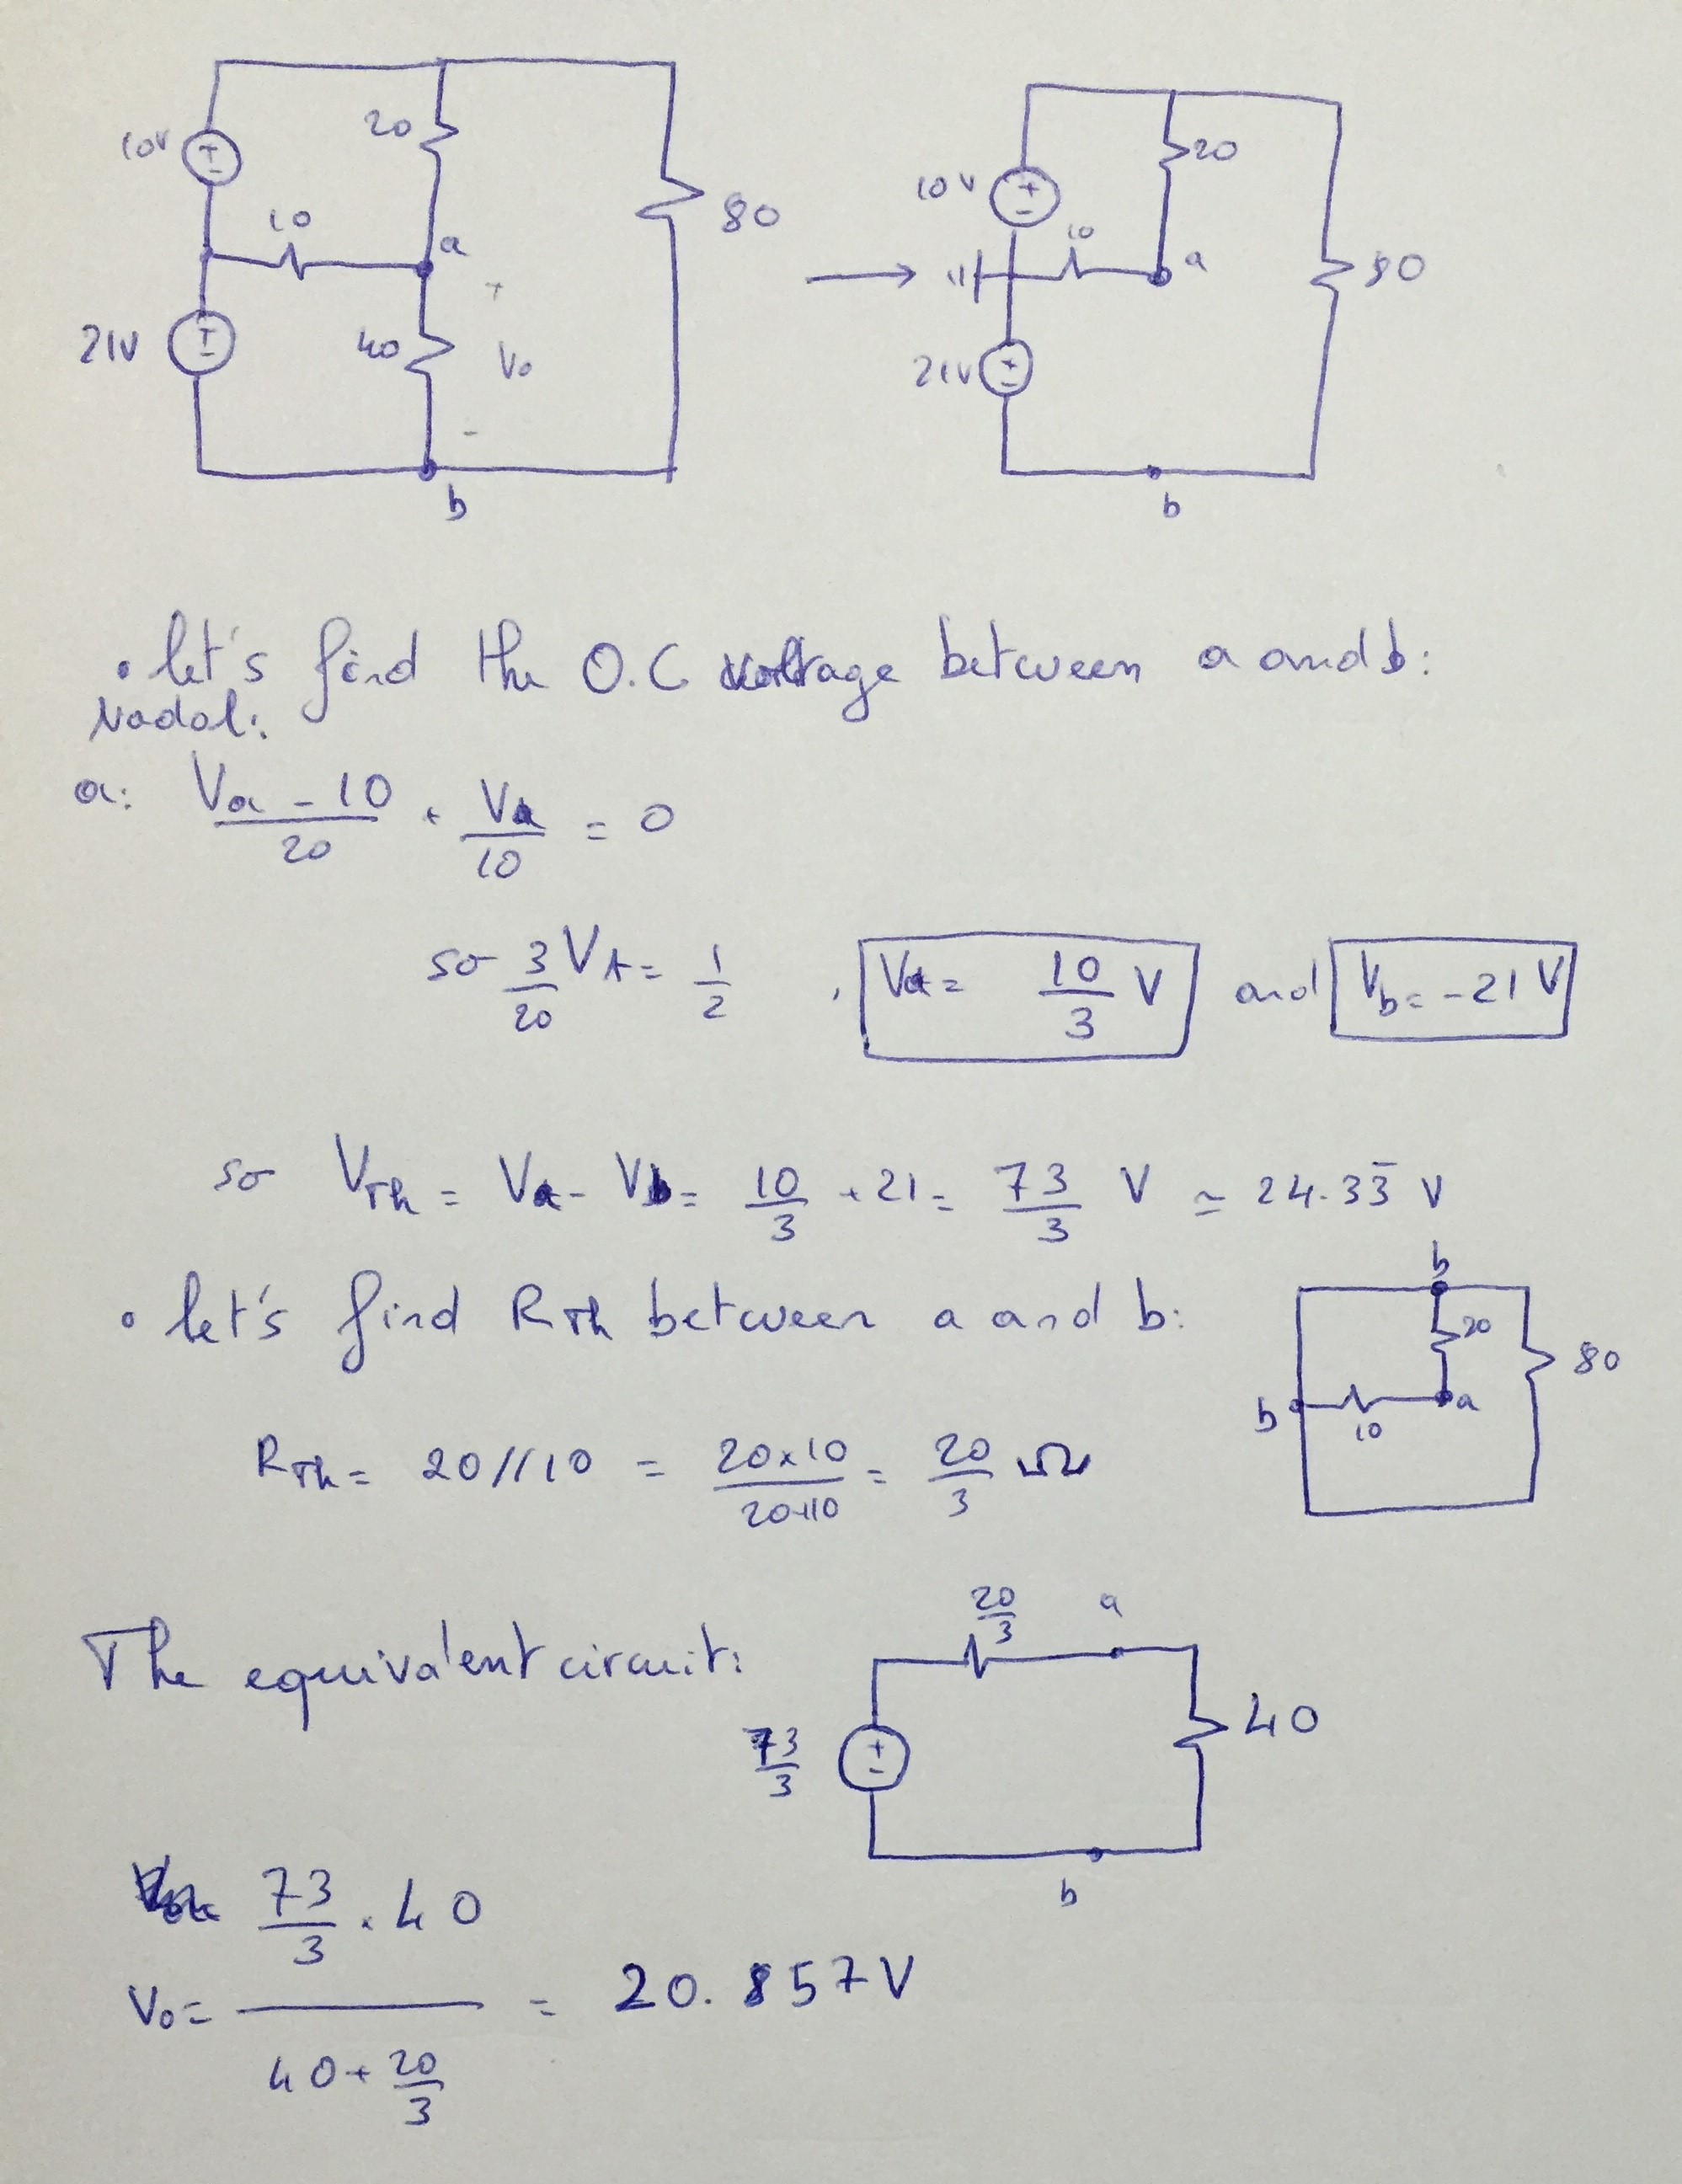 10V
20
10
a
+
80
21V
40
Vo
-
b
10V
20
10
a
80
21V
b
• let's find the O.C voltage between a and b:
Nodal:
a: Va - 10 / 20 + Va / 10 = 0
so 3/20 VA = 1/2 , Va = 10/3 V and Vb = -21 V
so VTh = Va - Vb = 10/3 + 21 = 73/3 V ≃ 24.33̄ V
• let's find RTh between a and b:
b
20
80
b
10
a
RTh = 20//10 = 20x10 / 20+10 = 20/3 Ω
The equivalent circuit:
20/3
a
73/3
+
-
40
b
Vo = 73/3 . 40 / 40 + 20/3 = 20.857V